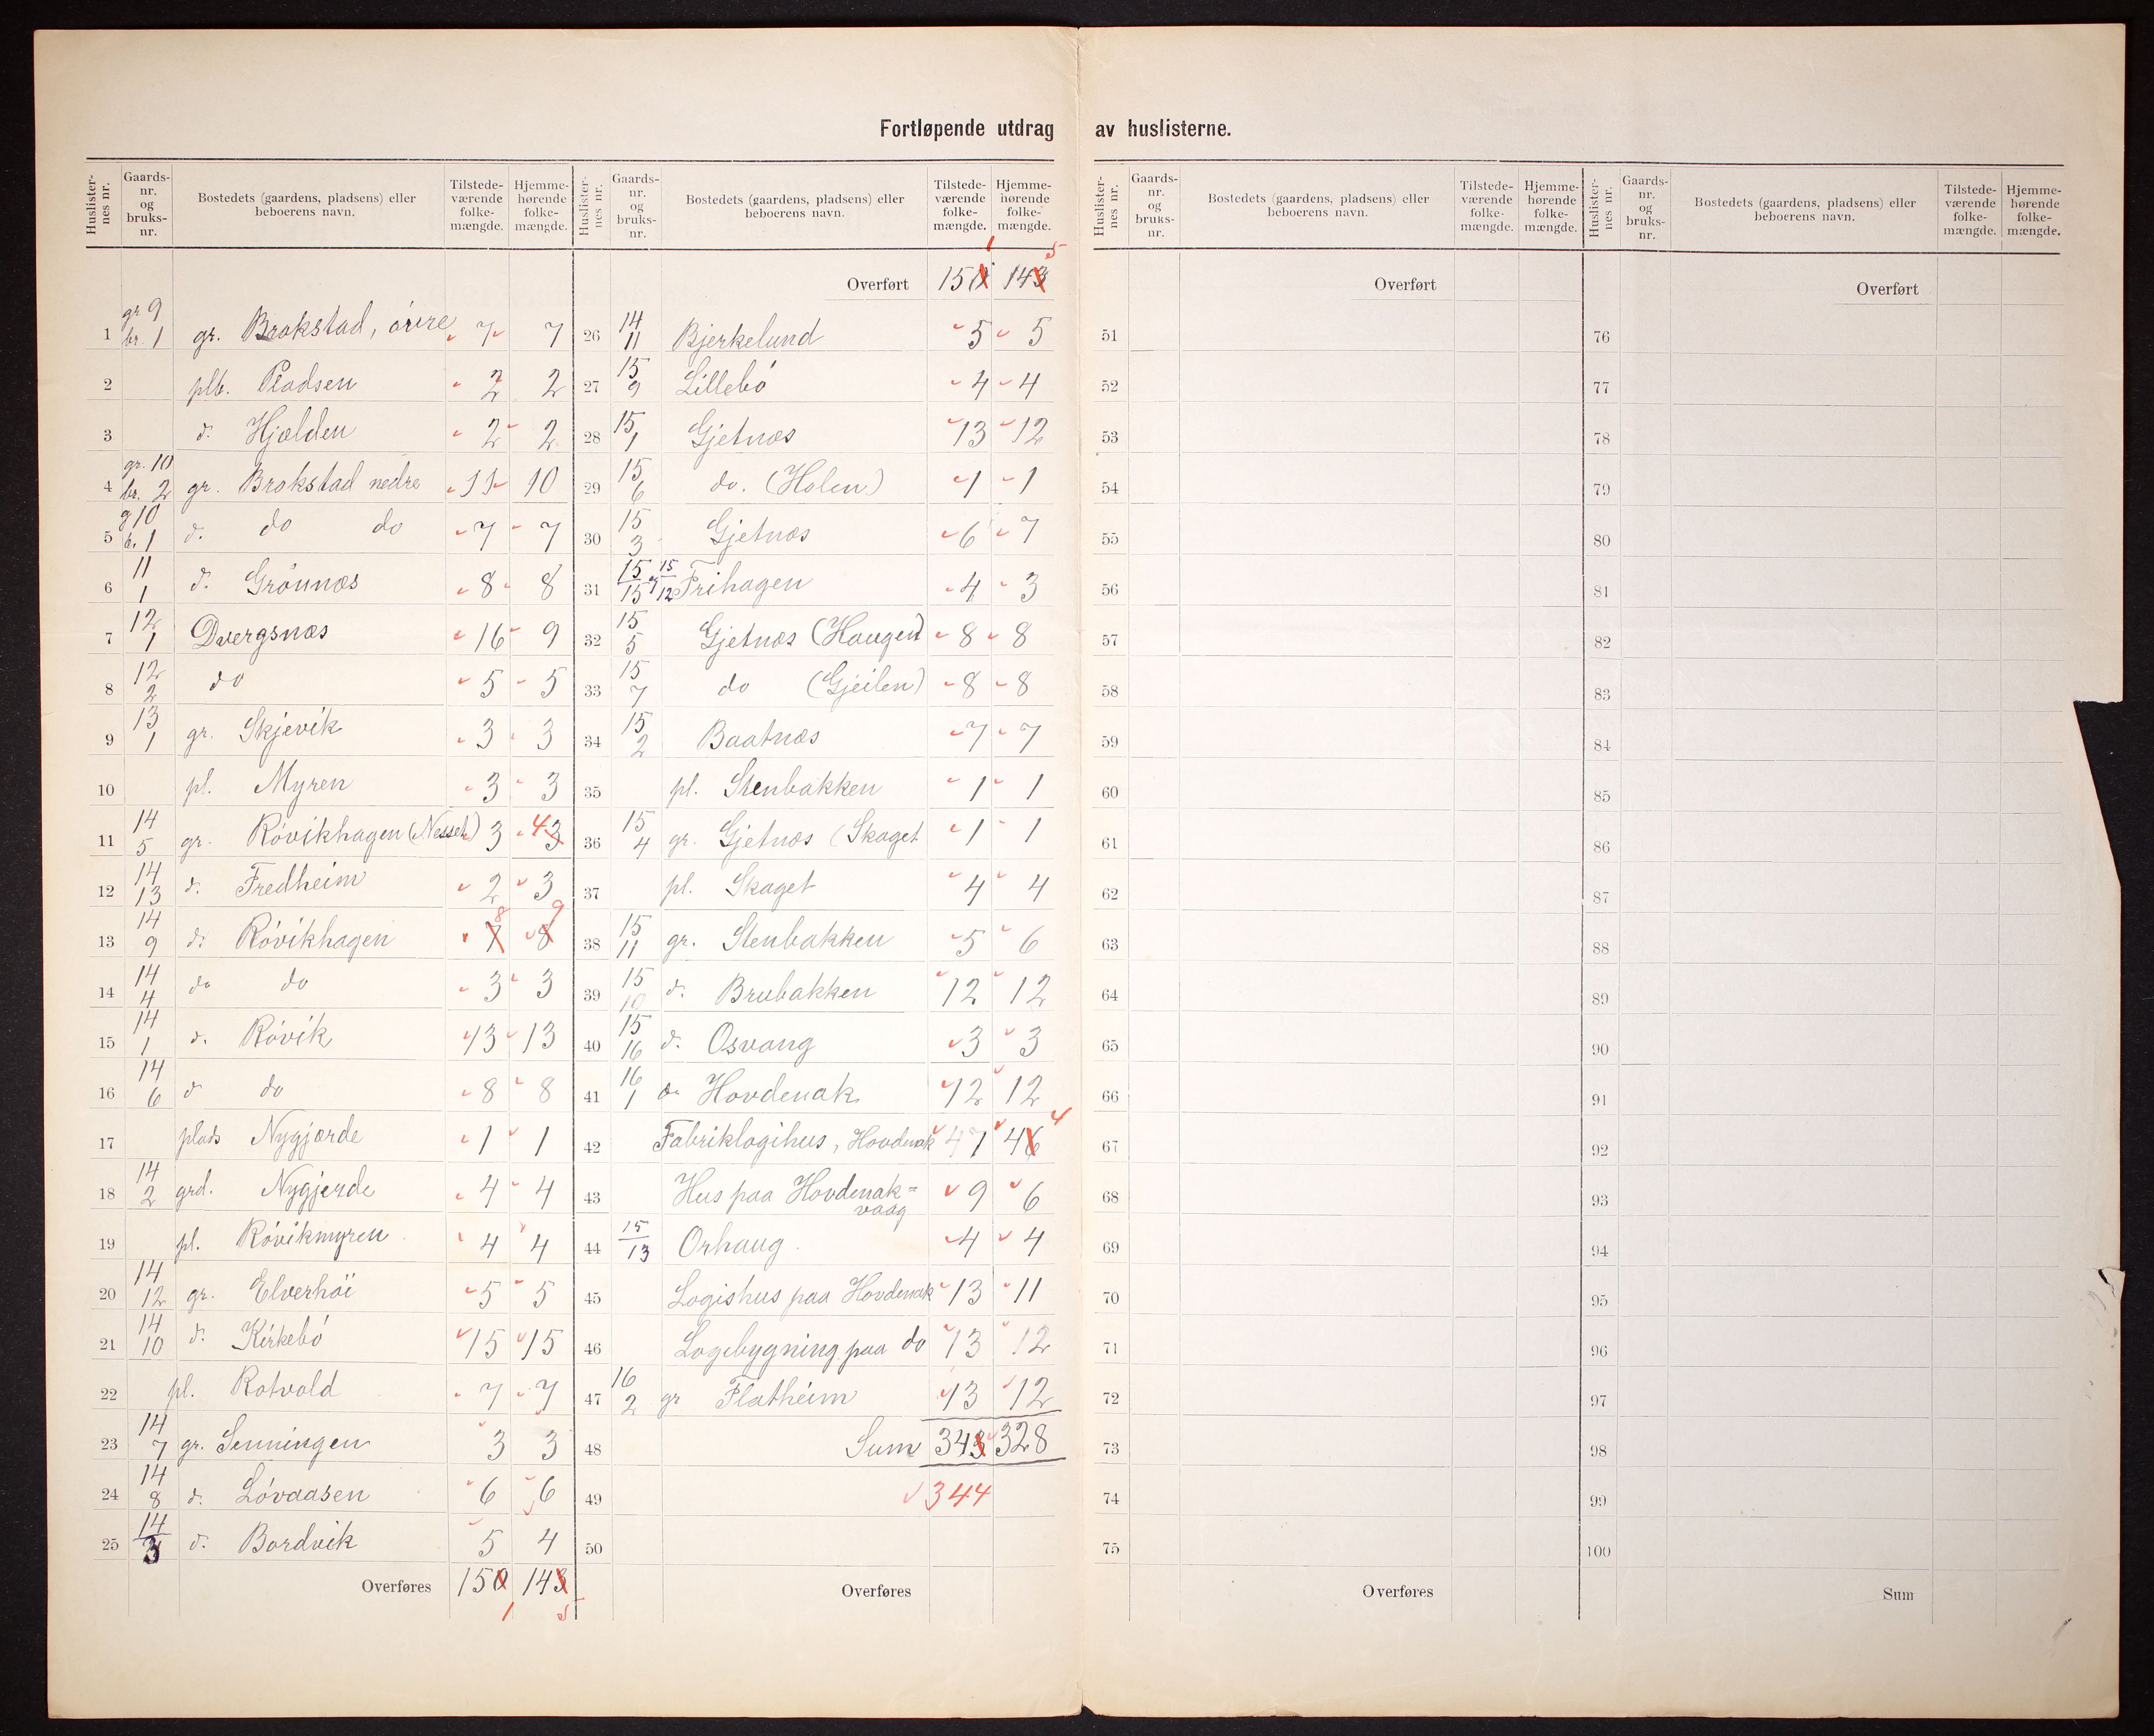 Fortløpende utdrag av huslisterne.
Huslister-nes nr. Gaards-nr. og bruks-nr. Bostedets (gaardens, pladsens) eller beboerens navn. Tilstede-værende folke-mængde. Hjemme-hørende folke-mængde.
1 gr 9 br. 1 gr. Brokstad, övre 7 7
2 plb. Pladsen 2 2
3 d. Hjælden 2 2
4 gr. 10 br. 2 gr. Brokstad nedre 11 10
5 g 10 b. 1 d. do do 7 7
6 11 1 d. Grönnæs 8 8
7 12 1 Dvergsnæs 16 9
8 12 2 do 5 5
9 13 1 gr. Skjevik 3 3
10 pl. Myren 3 3
11 14 5 gr. Rövikhagen (Nesset) 3 4 3
12 14 13 d. Fredheim 2 3
13 14 9 d. Rövikhagen 7 8 8 9
14 14 4 do do 3 3
15 14 1 d. Rövik 13 13
16 14 6 d do 8 8
17 plads Nygjærde 1 1
18 14 2 grd. Nygjerde 4 4
19 pl. Rövikmyren 4 4
20 14 12 gr. Elverhöi 5 5
21 14 10 d. Kirkebö 15 15
22 pl. Rotvold 7 7
23 14 7 gr. Senningen 3 3
24 14 8 d. Lövaasen 6 6
25 14 3 d. Bordvik 5 4
Overføres 150 143
1 5
Huslister-nes nr. Gaards-nr. og bruks-nr. Bostedets (gaardens, pladsens) eller beboerens navn. Tilstede-værende folke-mængde. Hjemme-hørende folke-mængde.
1 5
Overført 150 143
26 14 11 Bjerkelund 5 5
27 15 9 Lillebö 4 4
28 15 1 Gjetnæs 13 12
29 15 6 do. (Holen) 1 1
30 15 3 Gjetnæs 6 7
31 15/15 15/12 Frihagen 4 3
32 15 5 Gjetnæs (Haugen) 8 8
33 15 7 do (Gjeilen) 8 8
34 15 2 Baatnæs 7 7
35 pl. Stenbakken 1 1
36 15 4 gr. Gjetnæs (Skaget 1 1
37 pl. Skaget 4 4
38 15 11 gr. Stenbakken 5 6
39 15 10 d. Brubakken 12 12
40 15 16 d. Osvang 3 3
41 16 1 Hovdenak 12 12
42 Fabriklogihus, Hovdenak 47 46 4
43 Hus paa Hovdenak= 9 6
vaag
44 15/13 Orhaug. 4 4
45 Logishus paa Hovdenak 13 11
46 Logebygning paa do 13 12
47 16 2 gr Flatheim 13 12
48 Sum 343 328
49 344
50
Overføres
Huslister-nes nr. Gaards-nr. og bruks-nr. Bostedets (gaardens, pladsens) eller beboerens navn. Tilstede-værende folke-mængde. Hjemme-hørende folke-mængde.
Overført
51
52
53
54
55
56
57
58
59
60
61
62
63
64
65
66
67
68
69
70
71
72
73
74
75
Overføres
Huslister-nes nr. Gaards-nr. og bruks-nr. Bostedets (gaardens, pladsens) eller beboerens navn. Tilstede-værende folke-mængde. Hjemme-hørende folke-mængde.
Overført
76
77
78
79
80
81
82
83
84
85
86
87
88
89
90
91
92
93
94
95
96
97
98
99
100
Sum